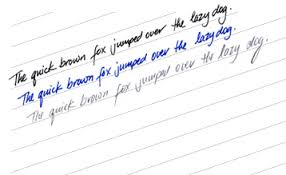 The quick brown fox jumped over the lazy dog.
The quick brown fox jumped over the lazy dog.
The quick brown fox jumped over the lazy dog.